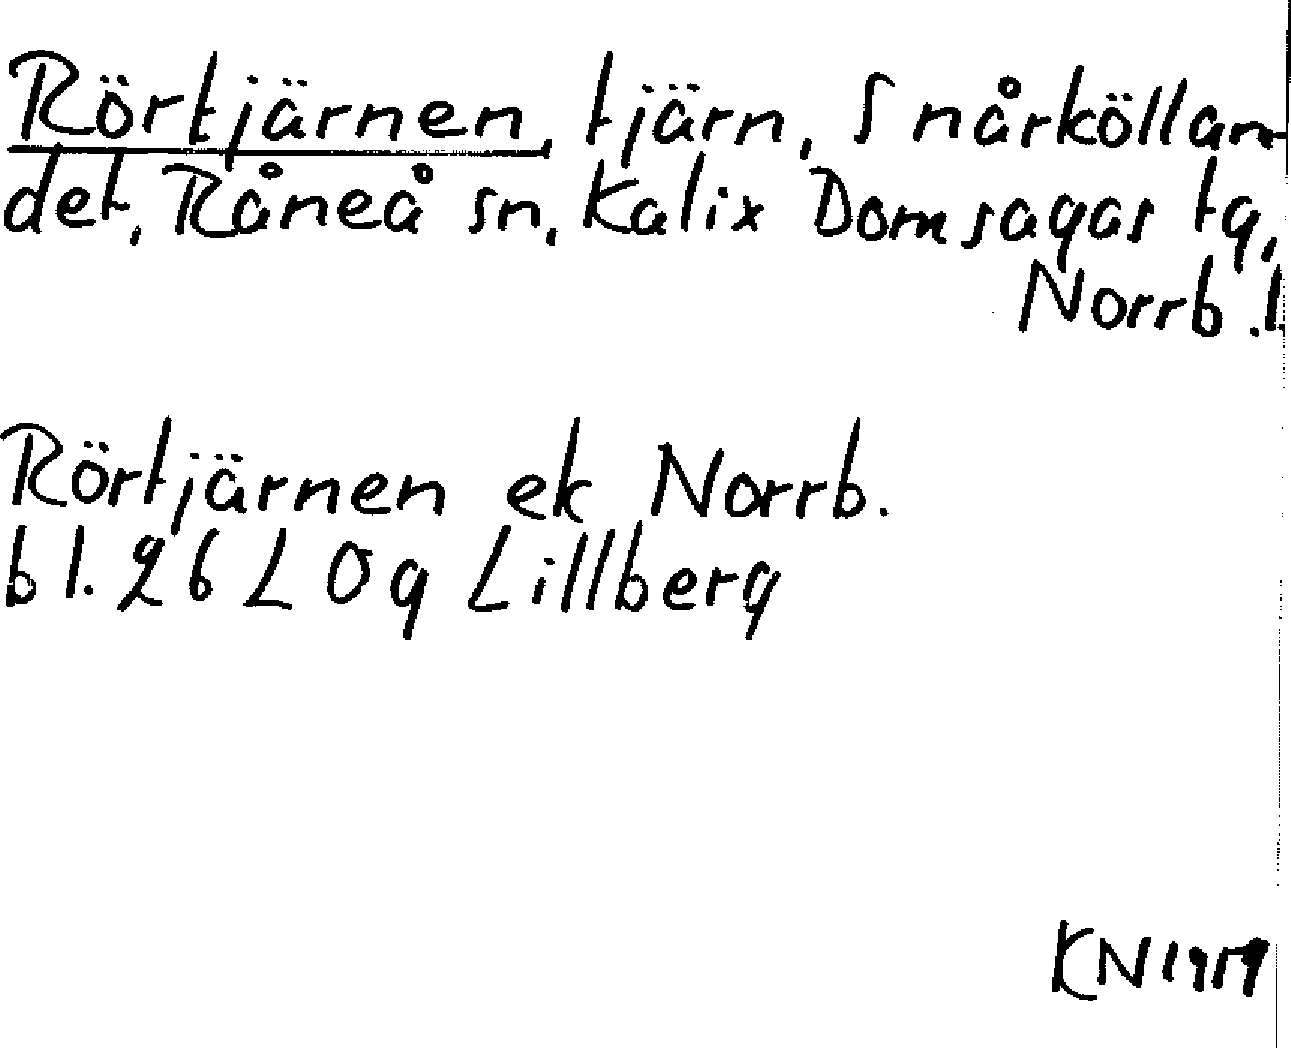 Rörtjärnen, tjärn, Snårköllan-
det, Råneå sn, Kalix Domsagas tg,
Norrb. l.
Rörtjärnen ek Norrb.
bl. 26 L Og Lillberg
KN